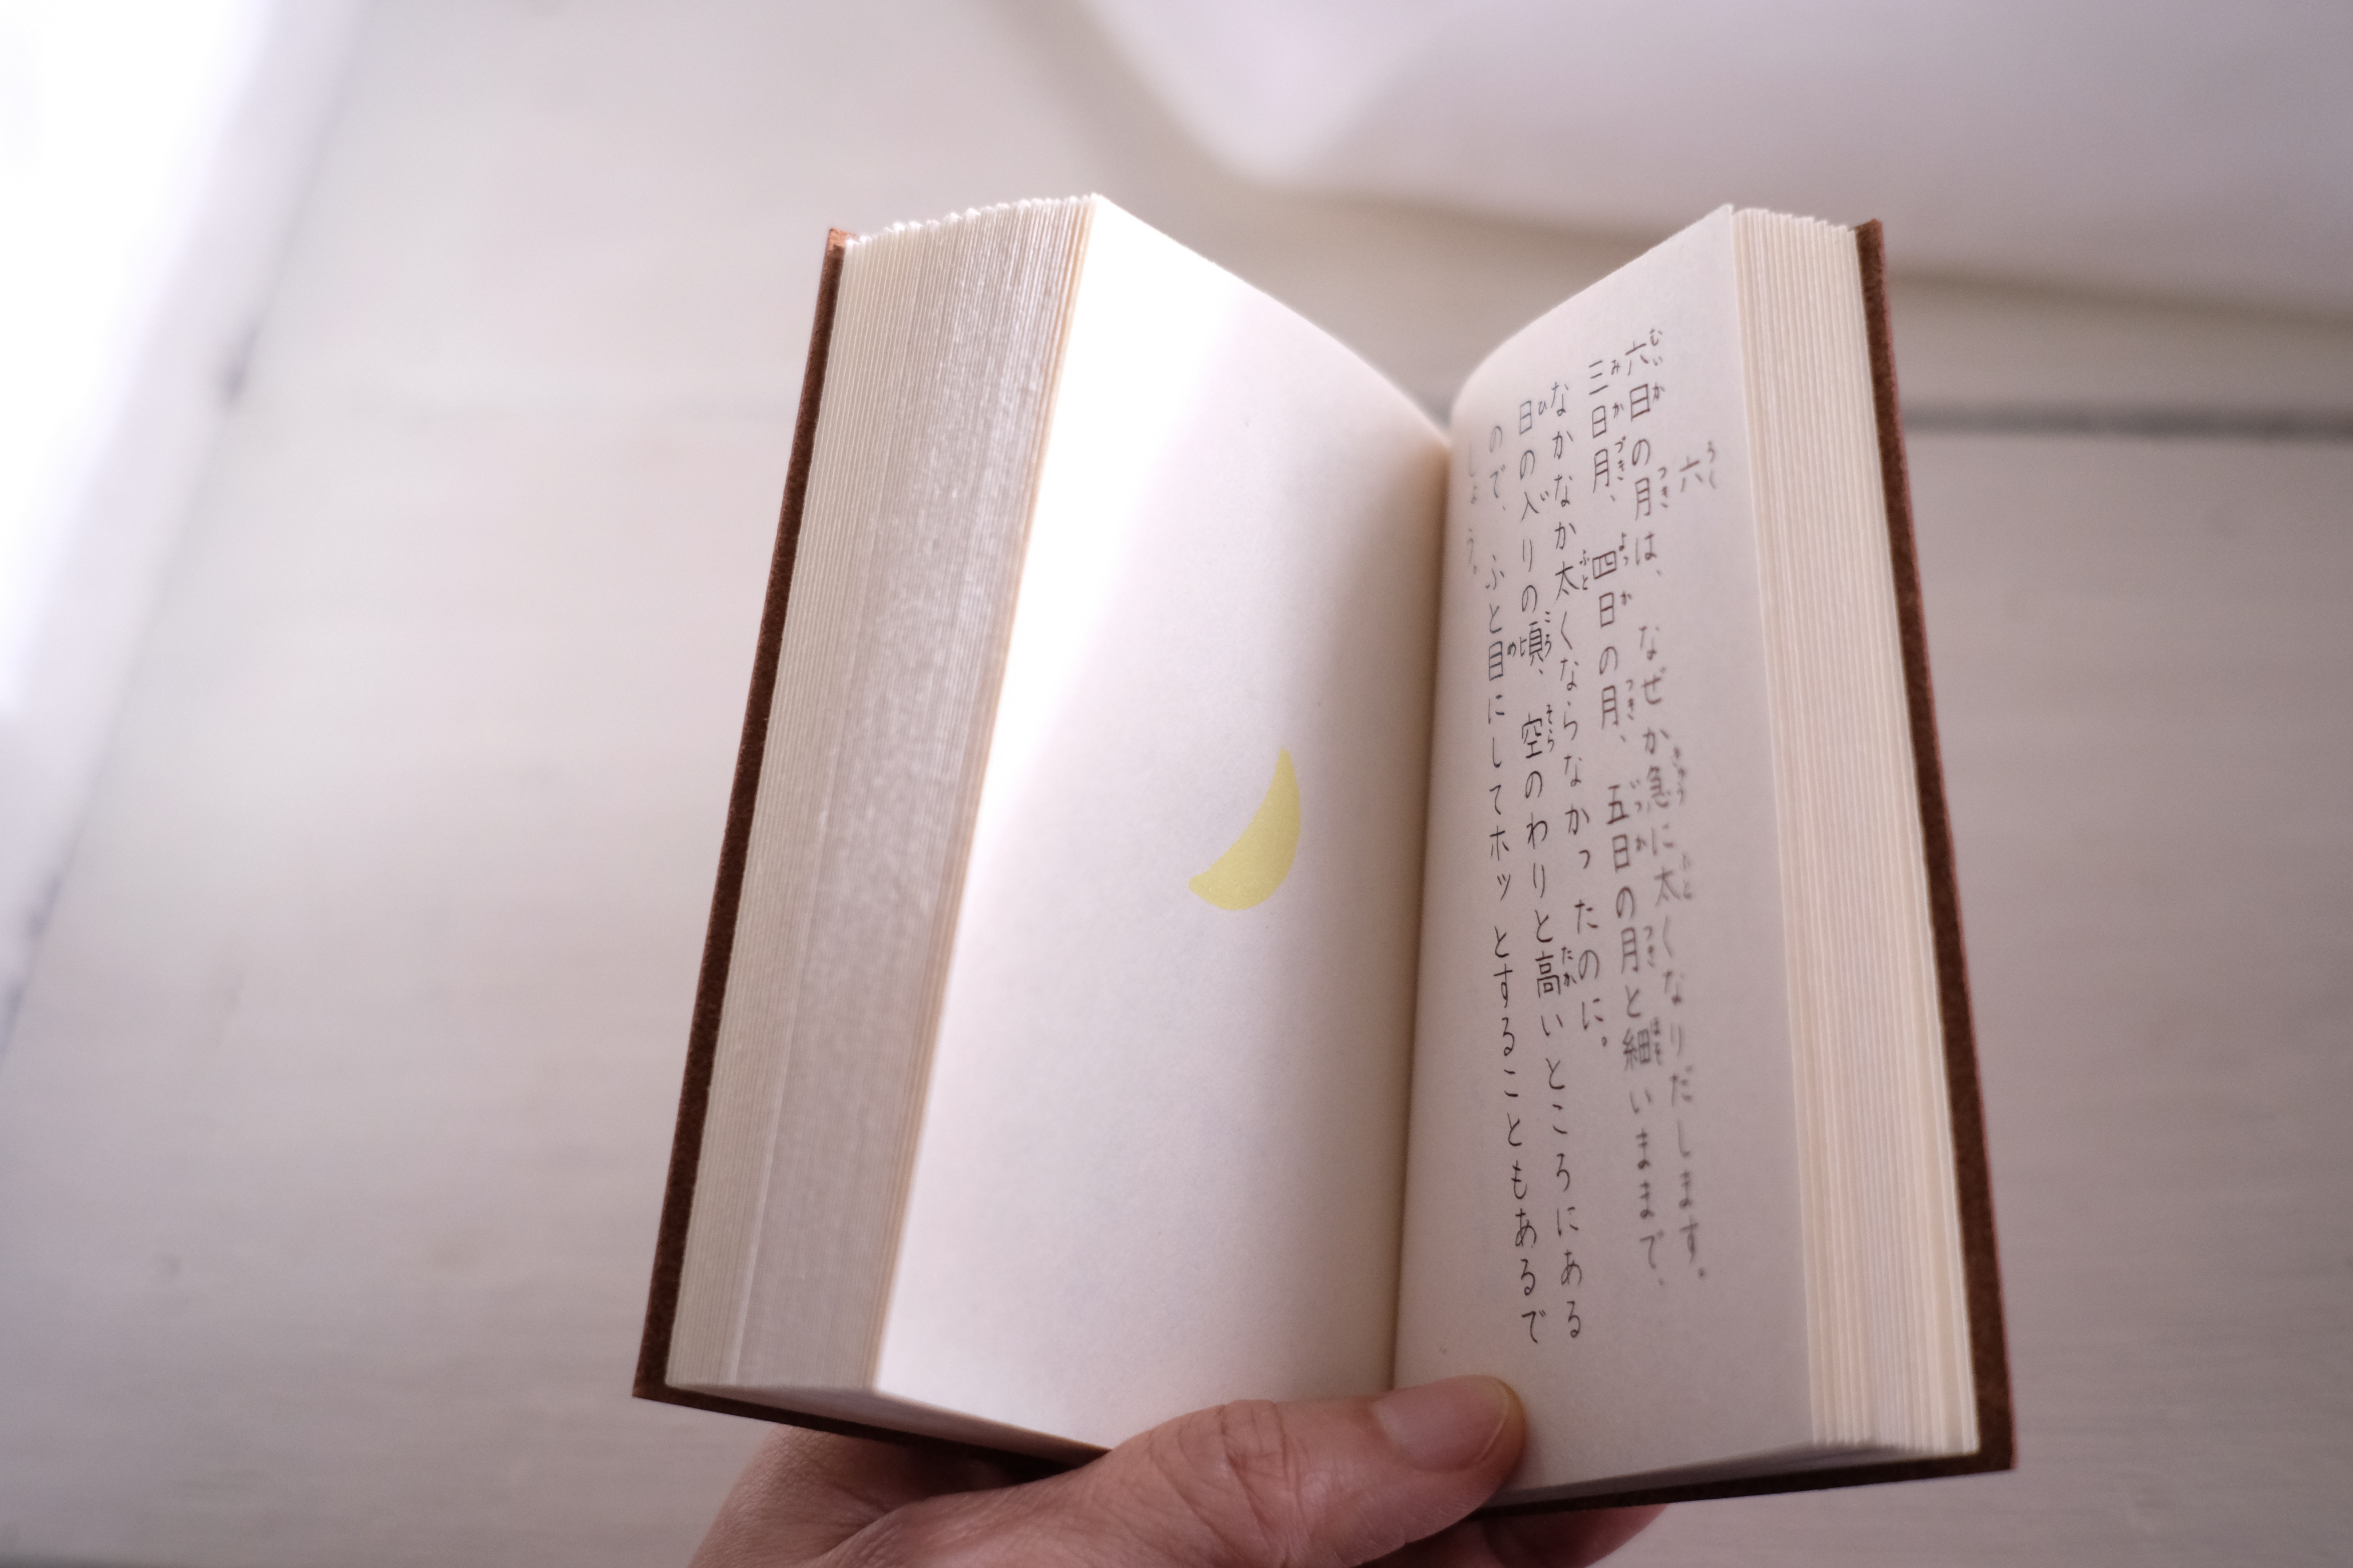 六
六日の月は、なぜか急に太くなりだします。
三日月、四日の月、五日の月と細いままで、
なかなか太くならなかったのに。
日の入りの頃、空のわりと高いところにある
ので、ふと目にしてホッとすることもあるで
しょう。